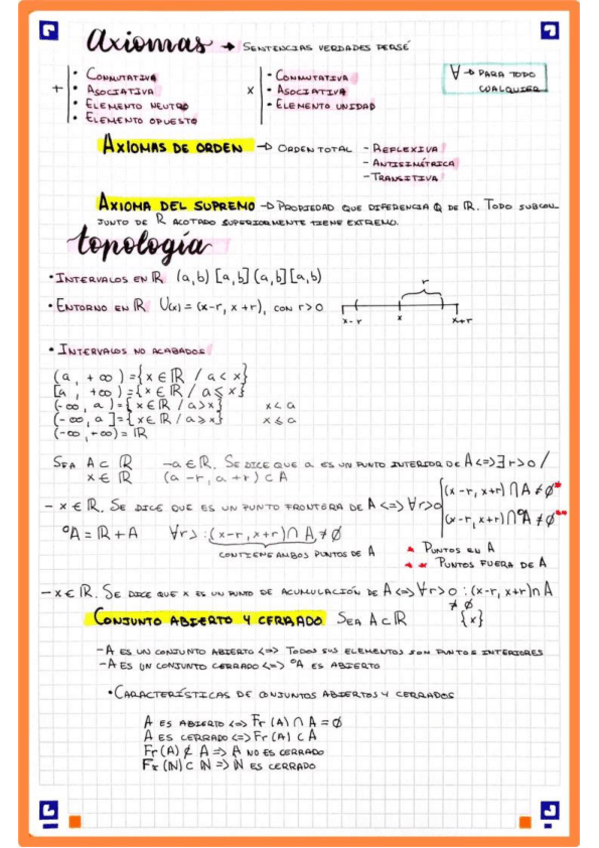 axiomas → SENTENCIAS VERDADES PERSÉ
+ | • CONMUTATIVA
• ASOCIATIVA
• ELEMENTO NEUTRO
• ELEMENTO OPUESTO
x | • CONMUTATIVA
• ASOCIATIVA
• ELEMENTO UNIDAD
∀ → PARA TODO
CUALQUIER
AXIOMAS DE ORDEN → ORDEN TOTAL - REFLEXIVA
- ANTISIMÉTRICA
- TRANSITIVA
AXIOMA DEL SUPREMO → PROPIEDAD QUE DIFERENCIA Q DE ℝ. TODO SUBCON
JUNTO DE ℝ ACOTADO SUPERIORMENTE TIENE EXTREMO.
topología
• INTERVALOS EN ℝ (a,b) [a,b] (a,b] [a,b)
• ENTORNO EN ℝ U(x) = (x-r, x+r), CON r>0
r
x-r x x+r
• INTERVALOS NO ACABADOS
(a, +∞) = {x ∈ ℝ / a < x}
[a, +∞) = {x ∈ ℝ / a ≤ x}
(-∞, a) = {x ∈ ℝ / a > x} x < a
(-∞, a] = {x ∈ ℝ / a ≥ x} x ≤ a
(-∞, +∞) = ℝ
SEA A ⊂ ℝ -a ∈ ℝ. SE DICE QUE a ES UN PUNTO INTERIOR DE A <=> ∃ r>0 /
x ∈ ℝ (a-r, a+r) ⊂ A
- x ∈ ℝ. SE DICE QUE ES UN PUNTO FRONTERA DE A <=> ∀r>0 (x-r, x+r) ∩ A ≠ ∅ *
(x-r, x+r) ∩ ᶜA ≠ ∅ **
ᶜA = ℝ + A ∀r> : (x-r, x+r) ∩ A ≠ ∅
CONTIENE AMBOS PUNTOS DE A
* PUNTOS EN A
** PUNTOS FUERA DE A
- x ∈ ℝ. SE DICE QUE x ES UN PUNTO DE ACUMULACIÓN DE A <=> ∀r>0 : (x-r, x+r) ∩ A
≠ ∅ {x}
CONJUNTO ABIERTO Y CERRADO SEA A ⊂ ℝ
- A ES UN CONJUNTO ABIERTO <=> TODOS SUS ELEMENTOS SON PUNTOS INTERIORES
- A ES UN CONJUNTO CERRADO <=> ᶜA ES ABIERTO
• CARACTERÍSTICAS DE CONJUNTOS ABIERTOS Y CERRADOS
A ES ABIERTO <=> Fr (A) ∩ A = ∅
A ES CERRADO <=> Fr (A) ⊂ A
Fr (A) ⊄ A => A NO ES CERRADO
Fr (ℕ) ⊂ ℕ => ℕ ES CERRADO